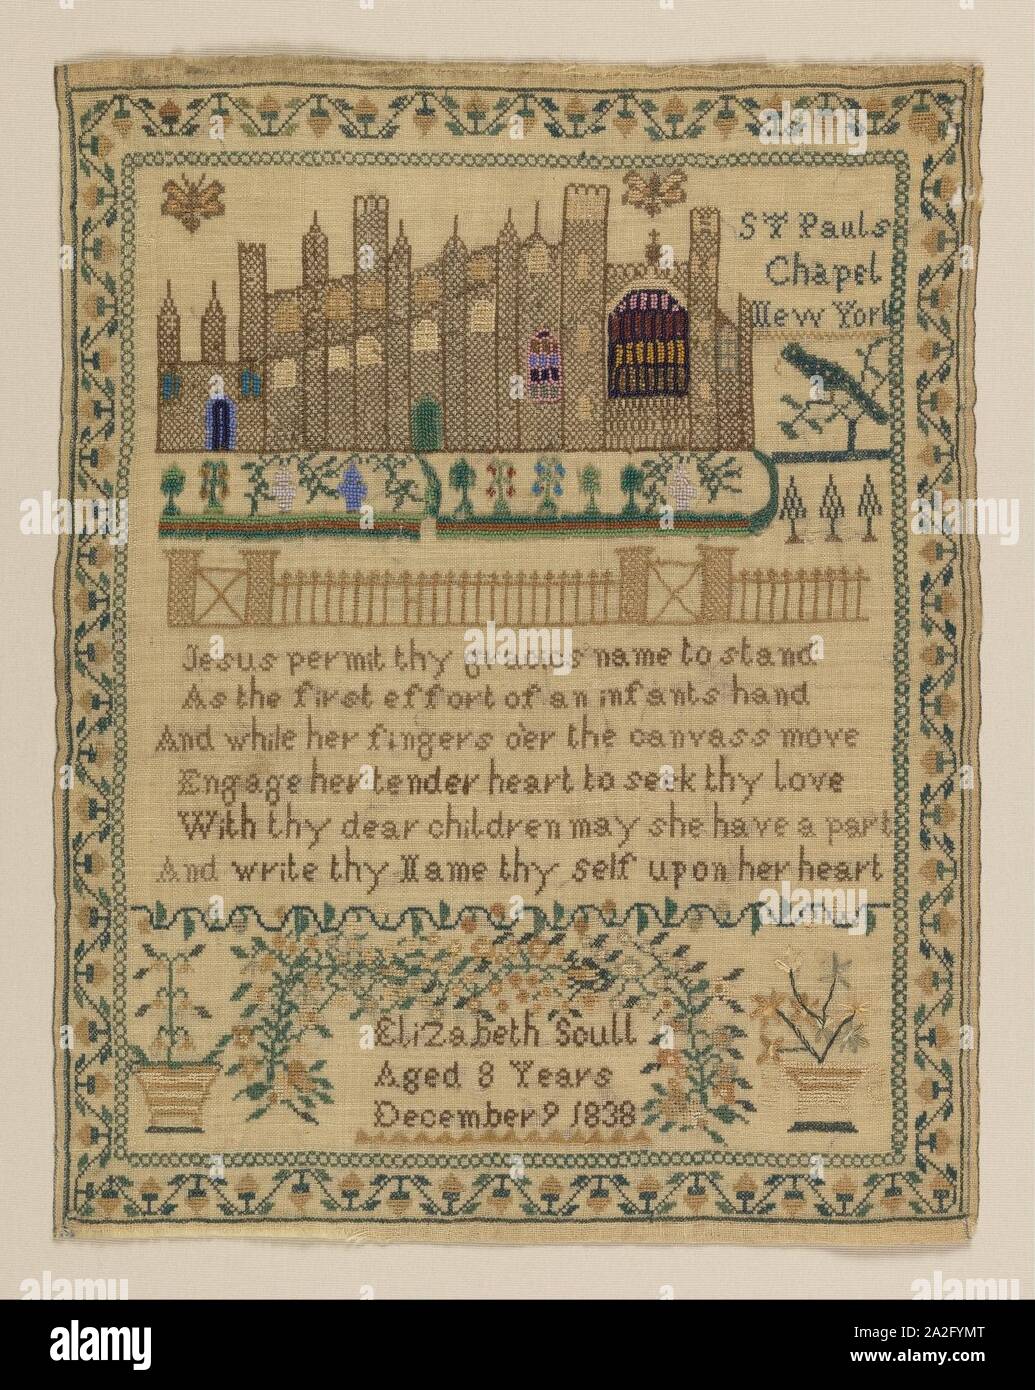 St Pauls
Chapel
New York
Jesus permit thy gracious name to stand
As the first effort of an infants hand
And while her fingers o'er the canvass move
Engage her tender heart to seek thy love
With thy dear children may she have a part
And write thy Name thy self upon her heart
Elizabeth Scull
Aged 8 Years
December 9 1838
alamy
alamy
Image ID: 2A2FYMT
www.alamy.com